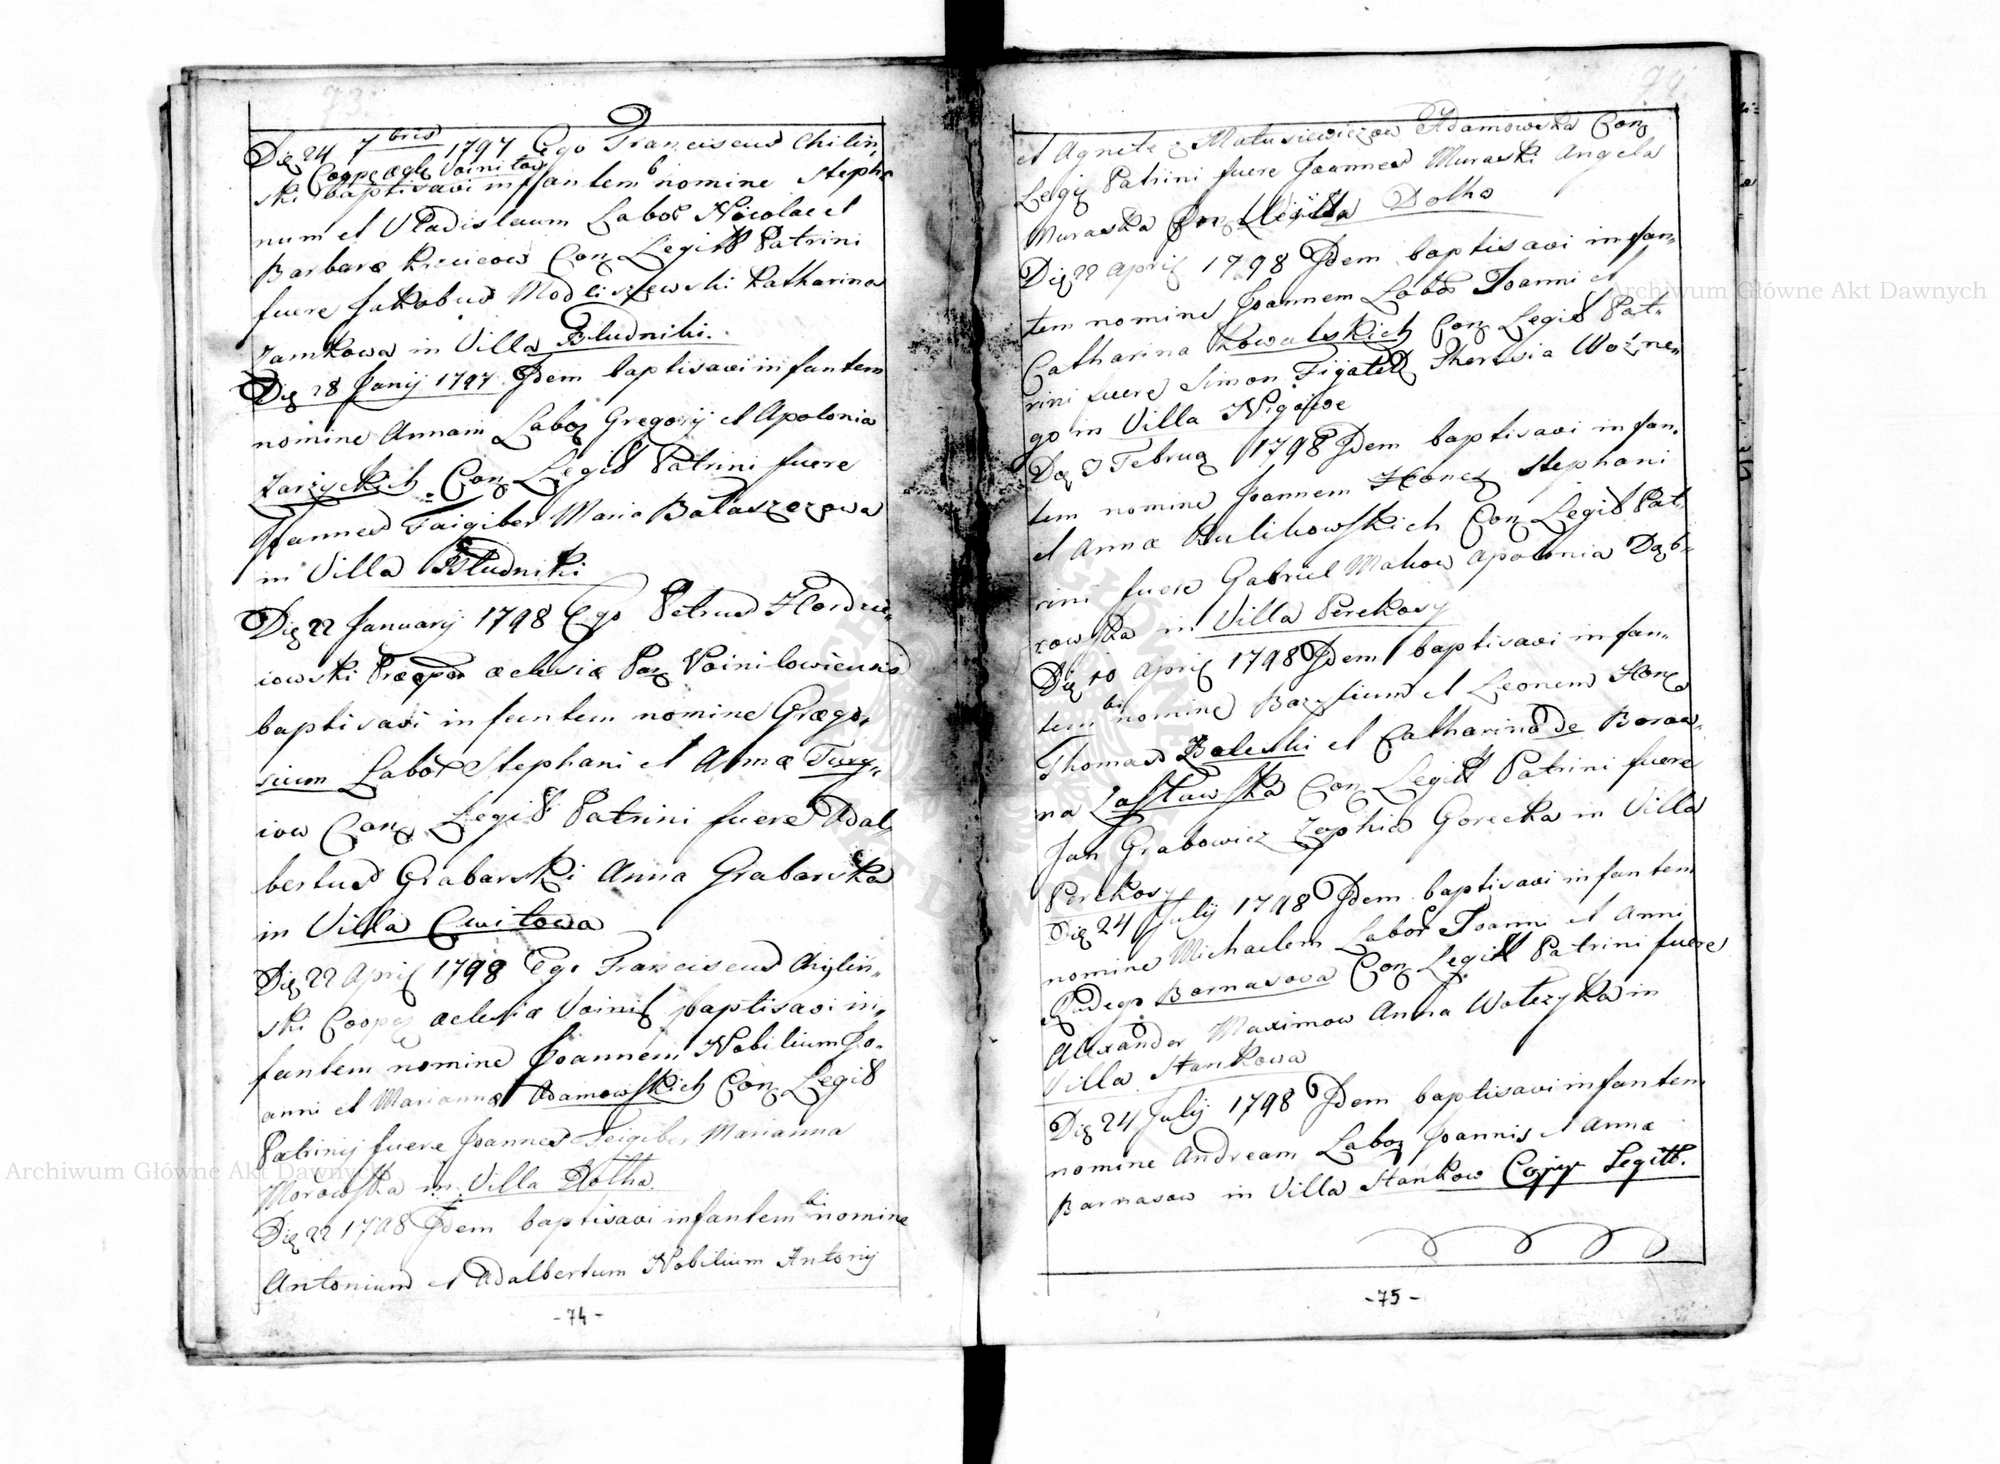 73.
Die 24 7bris 1797 Ego Franciscus Chilin„
Cooper Voinilov
ski baptisavi infantem b nomine Stepha
num et Vladislaum Labor Nicolai et
Barbara Con Legitt Patrini
fuere Jakobus Modliszewski Katharina
Zamkowa in Villa Bludniki.
Die 28 Junij 1797 Idem baptisavi infantem
nomine Annam Labor Gregorij et Apolonia
Zarzyckich Con Legitt Patrini fuere
Joannes Faigiber Maria Balaszozowa
in Villa Bludniki
Die 22 Januarij 1798 Ego Petrus
iowski Præpos æclesiæ Par Voinilowiensis
baptisavi infantem nomine Grægo„
rium Labor Stephani et Annæ
iow Con Legitt Patrini fuere Adal„
bertus Grabarski Anna Grabarska
in Villa Cwitowa
Die 22 April 1798 Ego Franciscus Chylin„
ski Cooper æclesiæ Voinil baptisavi in„
fantem nomine Joannem Nobilium Jo„
anni et Mariannæ Adamowskich Con Legitt
Patrinij fuere Joannes Feigiber Marianna
Morowska in Villa Dolha
Die 22 1798 Idem baptisavi infantem bi nomine
Antonium et Adalbertum Nobilium Antonij
-74-
74.
et Agnete z Matusiewiczow Adamowska Con
Legij Patrini fuere Joannes Muraski Angela
Muraska Con Legitt Villa Dolha
Die 22 April 1798 Idem baptisavi infan„
tem nomine Joannem Labor Joanni et
Catharina Kowalskich Con Legitt Pat„
rini fuere Simon Figatel Theresia Wozne„
go in Villa
Die 3 Februa 1798 Idem baptisavi infan„
tem nomine Joannem Honez Stephani
et Annæ Bulikowskich Con Legitt Pat„
rini fuere Gabriel Makow Apolonia Dąb„
rowska in Villa Perekosy
Die 10 April 1798 Idem baptisavi infan„
tem bi nomine Bazylium et Leonem Honez
Thomas Zaleski et Catharina de Boraw„
na Zasławska Con Legitt Patrini fuere
Jan Grabowicz Zophia Gorecka in Villa
Perekosy
Die 24 Julij 1798 Idem baptisavi infantem
nomine Michaelem Labor Joanni et Anni
Barnasova Con Legitt Patrini fuere
Alexander Maximow Anna in
Villa Stankowa
Die 24 Julij 1798 Idem baptisavi infantem
nomine Andream Labor Joannis et Annæ
Barnasow in Villa Stankow Legitt.
-75-
Archiwum Główne Akt Dawnych
Archiwum Główne Akt Dawnych